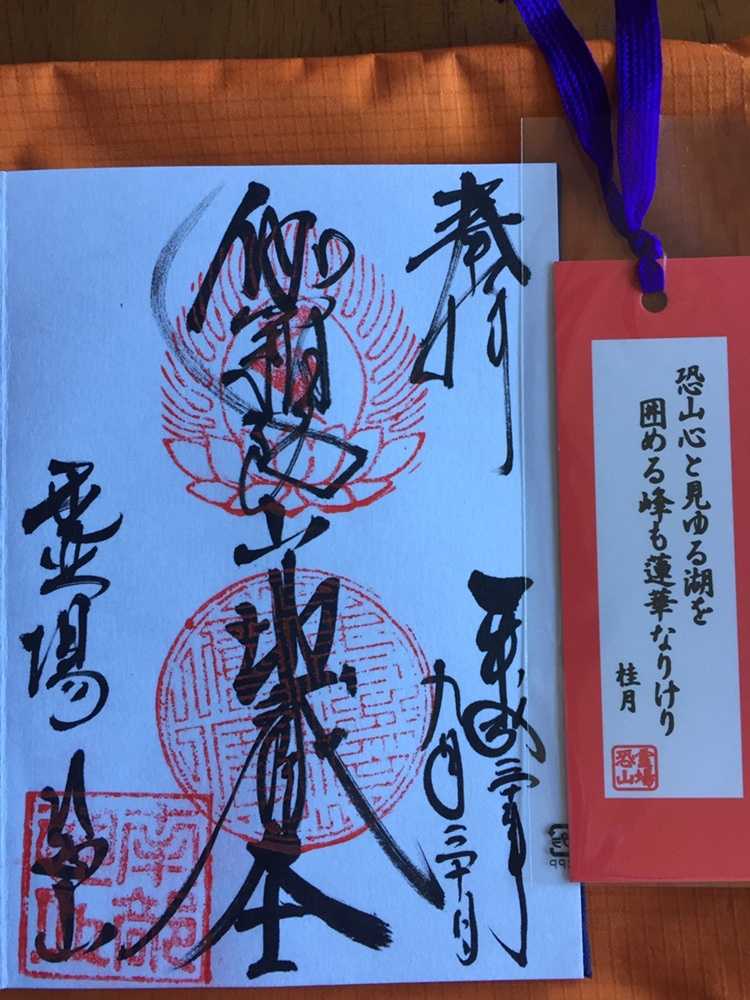 奉拝
平成三十年
九月
伽羅陀山地蔵
霊場恐山
南部
恐山
恐山心と見ゆる湖を
囲める峰も蓮華なりけり
桂月
霊場
恐山